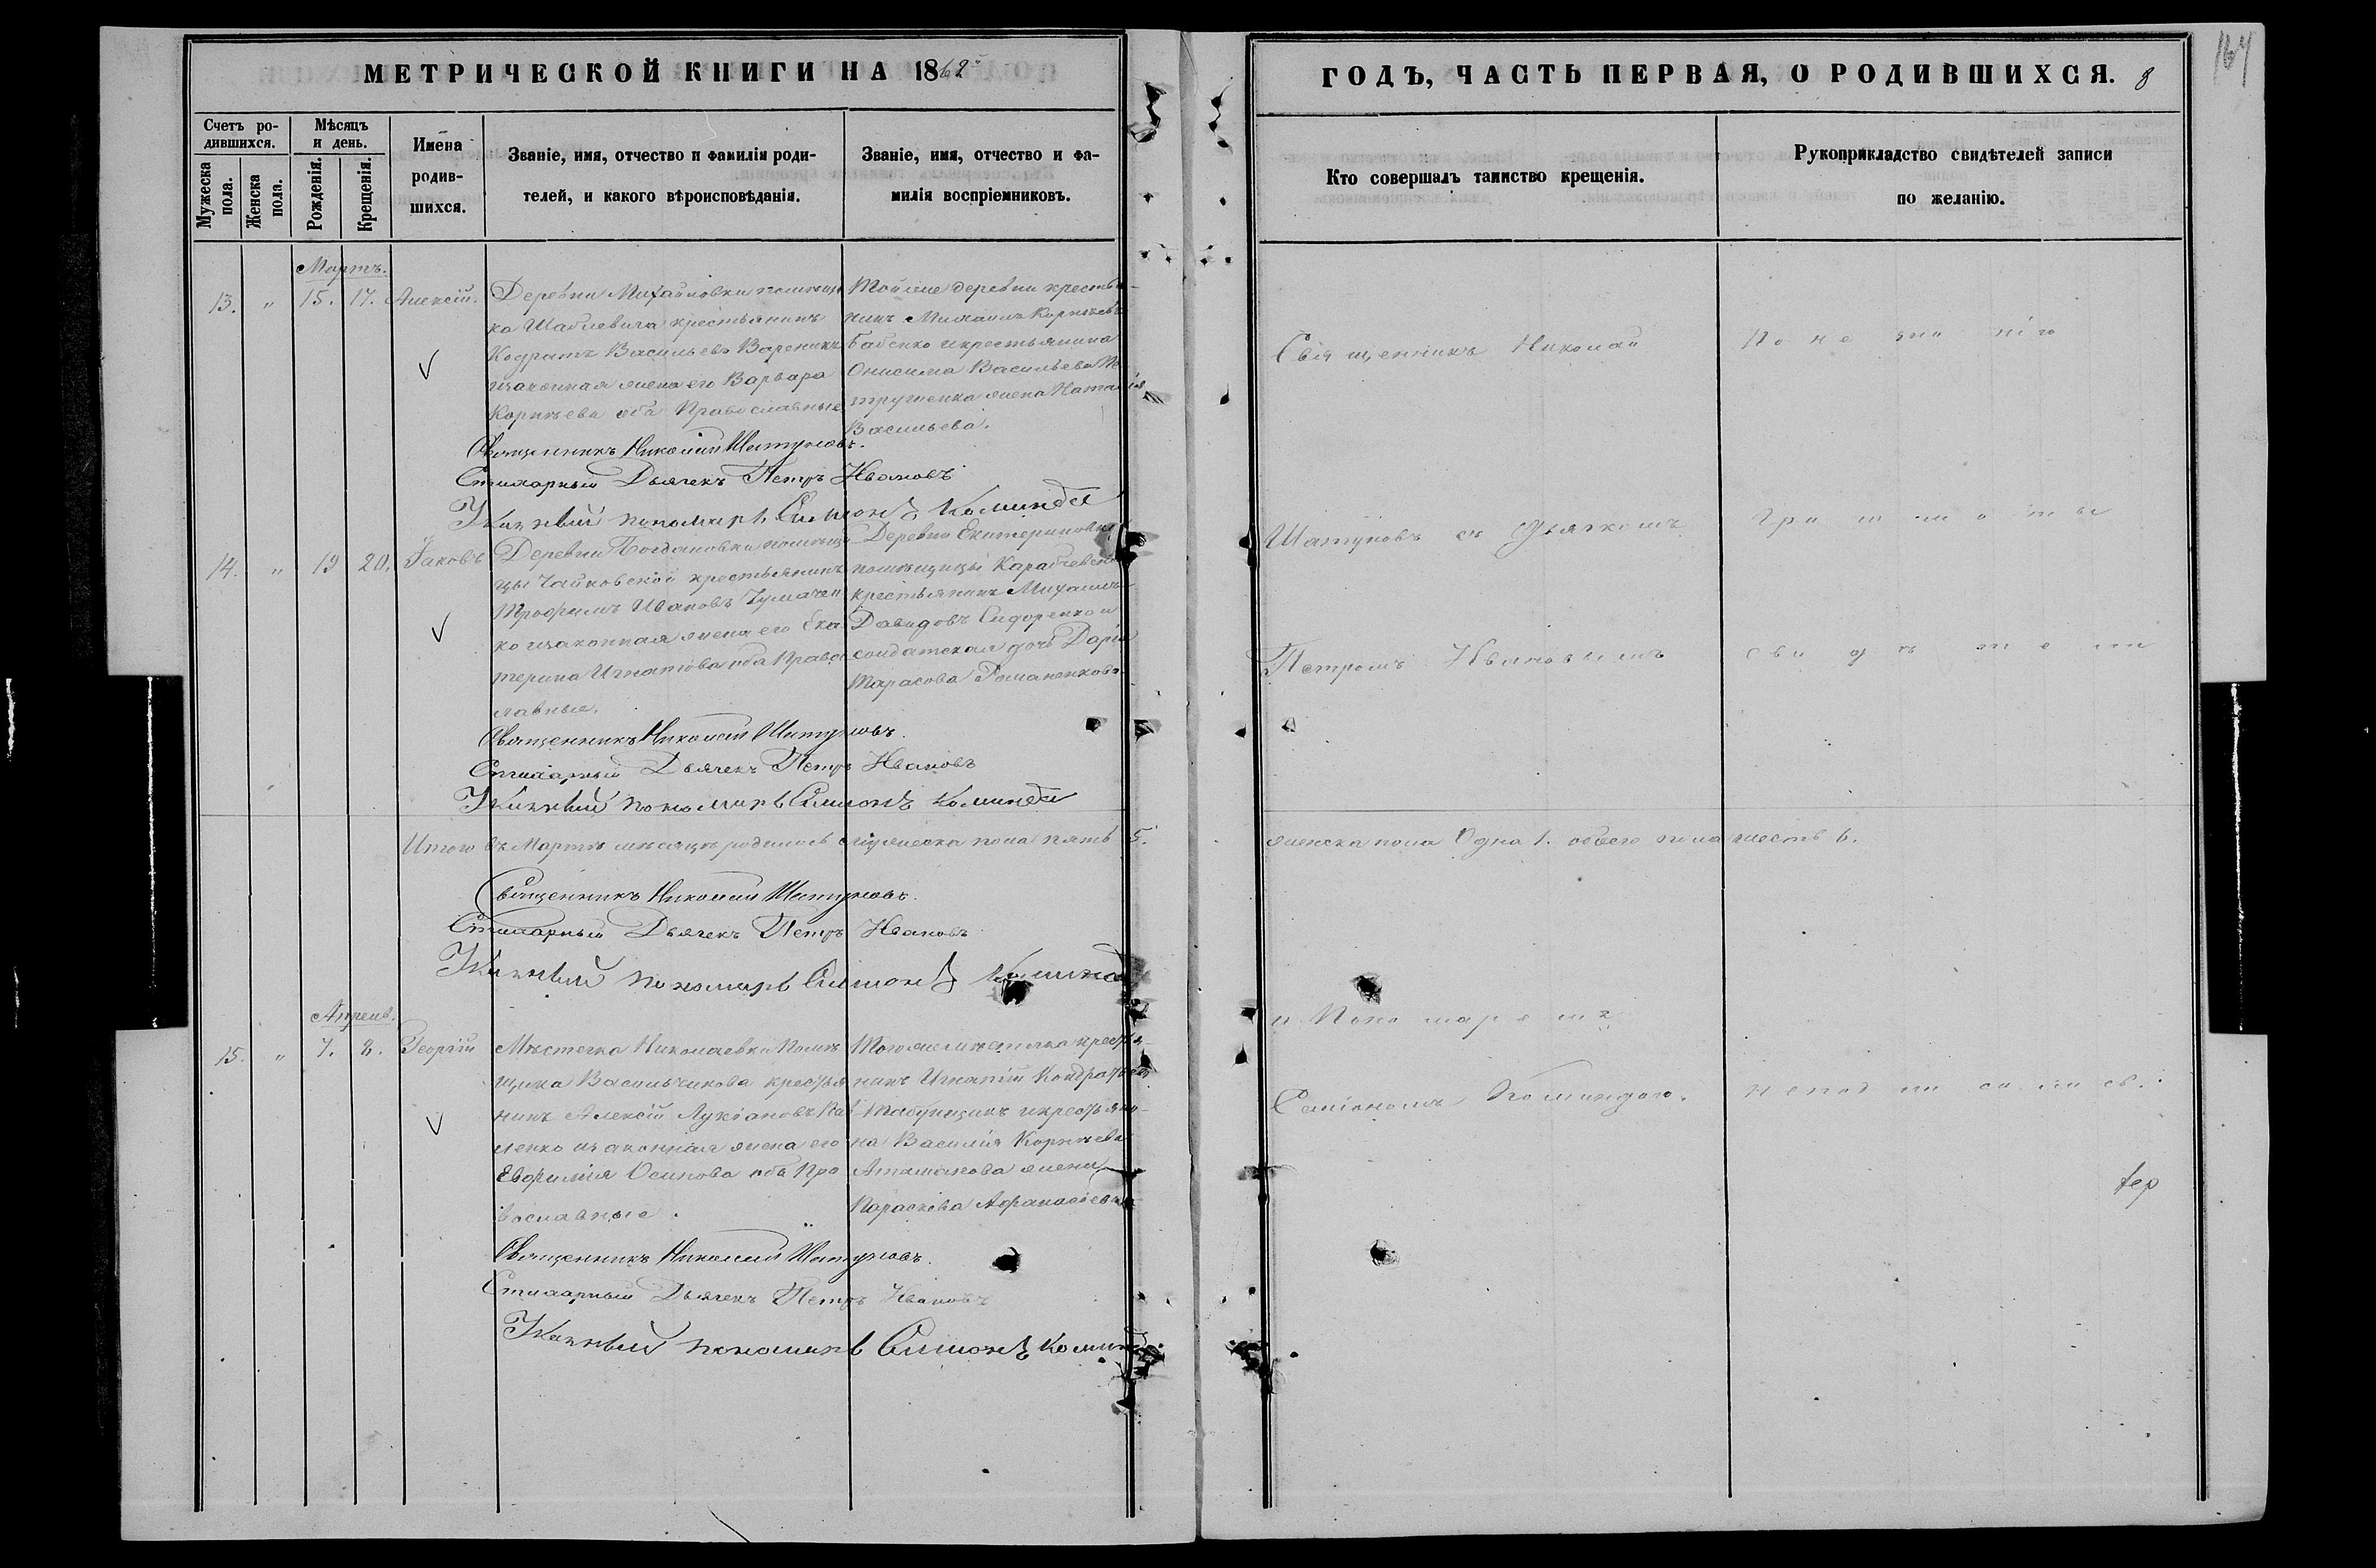 МЕТРИЧЕСКОЙ КНИГИ НА 1862
ГОДЪ, ЧАСТЬ ПЕРВАЯ, О РОДИВШИХСЯ. 8
164
Счетъ ро-
дившихся.
Мужеска пола.
Женска пола.
Мѣсяцъ
и день.
Рожденія.
Крещенія.
Имена
родив-
шихся.
Званіе, имя, отчество и фамилія роди-
телей, и какого вѣроисповѣданія.
Званіе, имя, отчество и фа-
милія воспріемниковъ.
Кто совершалъ таинство крещенія.
Рукоприкладство свидѣтелей записи
по желанію.
Мартъ.
13. " 15. 17. Алексій.
Деревни Михайловки помѣщи
ка Шаблевича крестьянинъ
Кодратъ Васильевъ Вареникъ
изаконная жена его Варвара
Корнѣева оба Православные
Тойже деревни крестья
нинъ Михаилъ Корнѣевъ
Бабенко и крестьянина
Онисима Васильева Пе
трушенка жена Наталія
Васильева.
Священникъ Николай Шатуновъ.
Стихарный Дьячекъ Петръ Ивановъ
Указный пономарь Симонъ Коминда
14. " 19 20. Іаковъ
Деревни Богдановки помѣщи
цы Чайковской крестьянинъ
Трофимъ Ивановъ Чумачен
ко изаконная жена его Ека
терина Игнатова оба Правос
лавные.
Деревни Екатериновки
помѣщицы Карачевской
крестьянинъ Михаилъ
Давидовъ Сидоренко и
солдатская дочь Дарія
Тарасова Романенкова
Священникъ Николай Шатуновъ.
Стихарный Дьячекъ Петръ Ивановъ
Указный пономарь Симонъ Коминда
Итого въ Мартѣ мѣсяцѣ родилось мужеска пола пять 5.
женска пола Одна 1. обоего пола шесть 6.
Священникъ Николай Шатуновъ.
Стихарный Дьячекъ Петръ Ивановъ
Указный пономарь Симонъ Коминда
Апрель.
15. " 7. 8. Георгій
Мѣстечка Николаевки Помѣ
щика Васильчикова крестья
нинъ Алексій Лукіановъ Пав
ленко изаконная жена его
Евфимія Осипова оба Пра
вославные.
Тогожемѣстечка крестья
нинъ Игнатій Кондратьевъ
Табунщикъ и крестьяни
на Василія Корнѣева
Атаманова жена
Параскева Афанасіева
Священникъ Николай Шатуновъ.
Стихарный Дьячекъ Петръ Ивановъ
Указный пономарь Симонъ Коминда
Священникъ Николай
Шатуновъ съ Дьячкомъ
Петромъ Ивановымъ
и Пономаремъ
Симіономъ Коминдою.
По незнанію
грамоты
свидѣтели
неподписались.